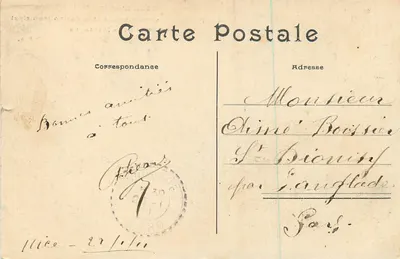 Carte Postale
Correspondance
Adresse
Bonnes amitiés
à tous
Nice
Monsieur
Aimé Boissier
St Dionisy
par Langlade
Gard